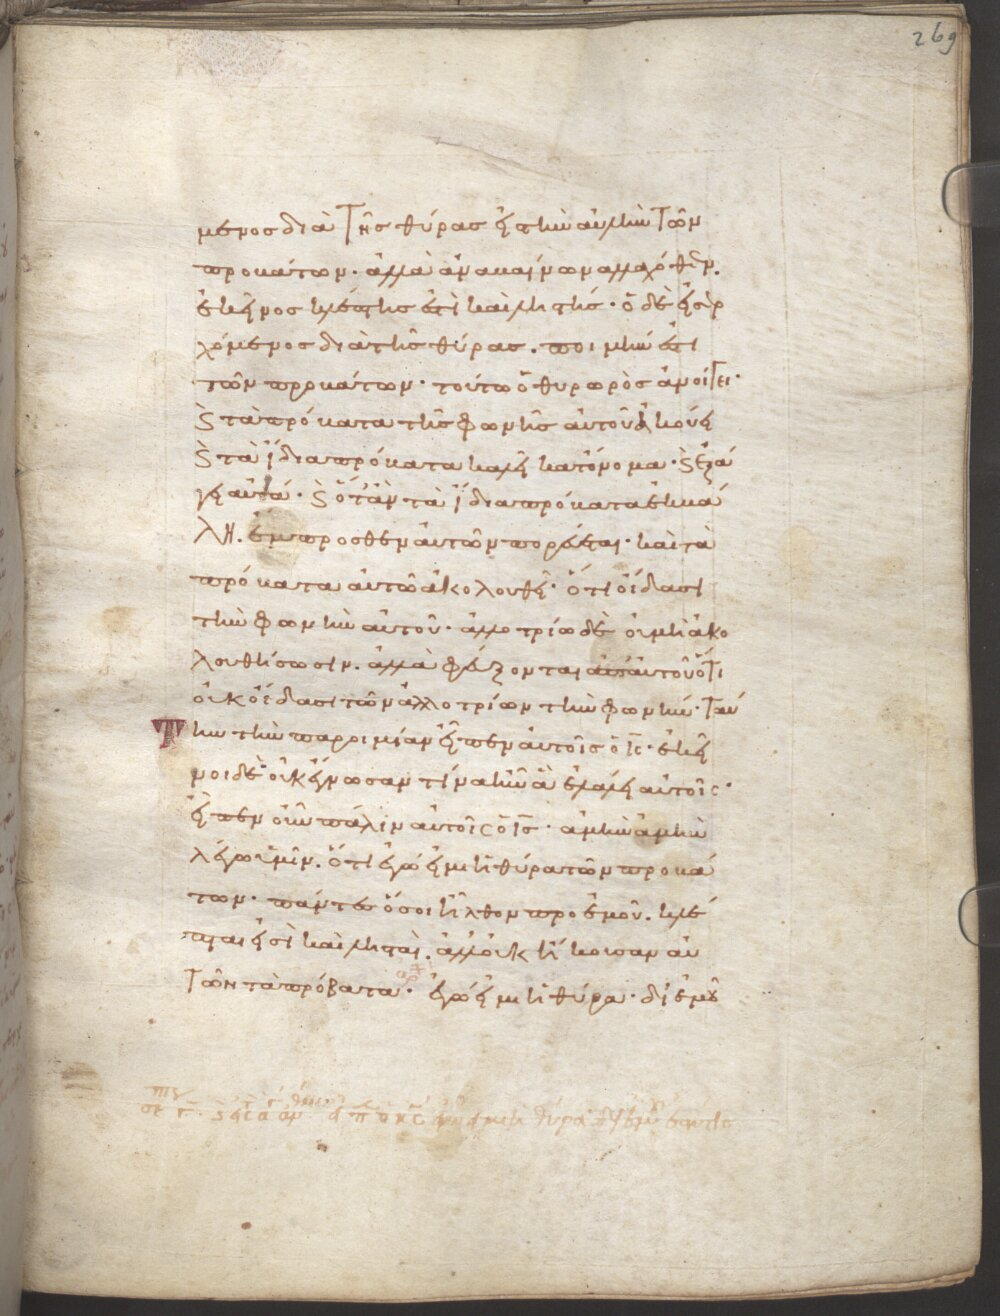 269
μενος διὰ τῆς θύρας εἰς τὴν αὐλὴν τῶν
προβάτων· ἀλλὰ ἀναβαίνων ἀλλαχόθεν.
ἐκεῖνος κλέπτης ἐστὶ καὶ λῃστής· ὁ δὲ εἰσερ
χόμενος διὰ τῆς θύρας. ποιμήν ἐστι
τῶν προβάτων· τούτω ὁ θυρωρὸς ἀνοίγει·
ϗ τὰ πρόβατα τῆς φωνῆς αὐτοῦ ἀκούει
ϗ τὰ ἴδια πρόβατα καλεῖ κατ' ὄνομα· ϗ ἐξά
γει αὐτά· ϗ ὅταν τὰ ἴδια πρόβατα ἐκβά
λη. ἔμπροσθεν αὐτῶν πορεύεται· καὶ τὰ
πρόβατα αὐτῶ ἀκολουθεῖ· ὅτι οἴδασι
τὴν φωνὴν αὐτοῦ· ἀλλοτρίω δὲ οὐ μὴ ἀκο
λουθήσωσιν. ἀλλὰ φεύξονται ἀπ' αὐτοῦ ὅτι
οὐκ οἴδασι τῶν ἀλλοτρίων τὴν φωνήν· ταύ
την τὴν παροιμίαν εἶπεν αὐτοῖς ὁ ις· ἐκεῖ
νοι δὲ οὐκ ἔγνωσαν τίνα ἦν ἃ ἐλάλει αὐτοῖς·
εἶπεν οὖν πάλιν αὐτοῖς ὁ ις· ἀμὴν ἀμὴν
λέγω ὑμῖν. ὅτι ἐγώ εἰμι ἡ θύρα τῶν προβά
των· πάντες ὅσοι ἦλθον προ ἐμοῦ. κλέ
πται εἰσὶ καὶ λῃσταί. ἀλλ' οὐκ ἤκουσαν αὐ
τῶν τὰ πρόβατα· ἐγώ εἰμι ἡ θύρα· δι' ἐμοῦ